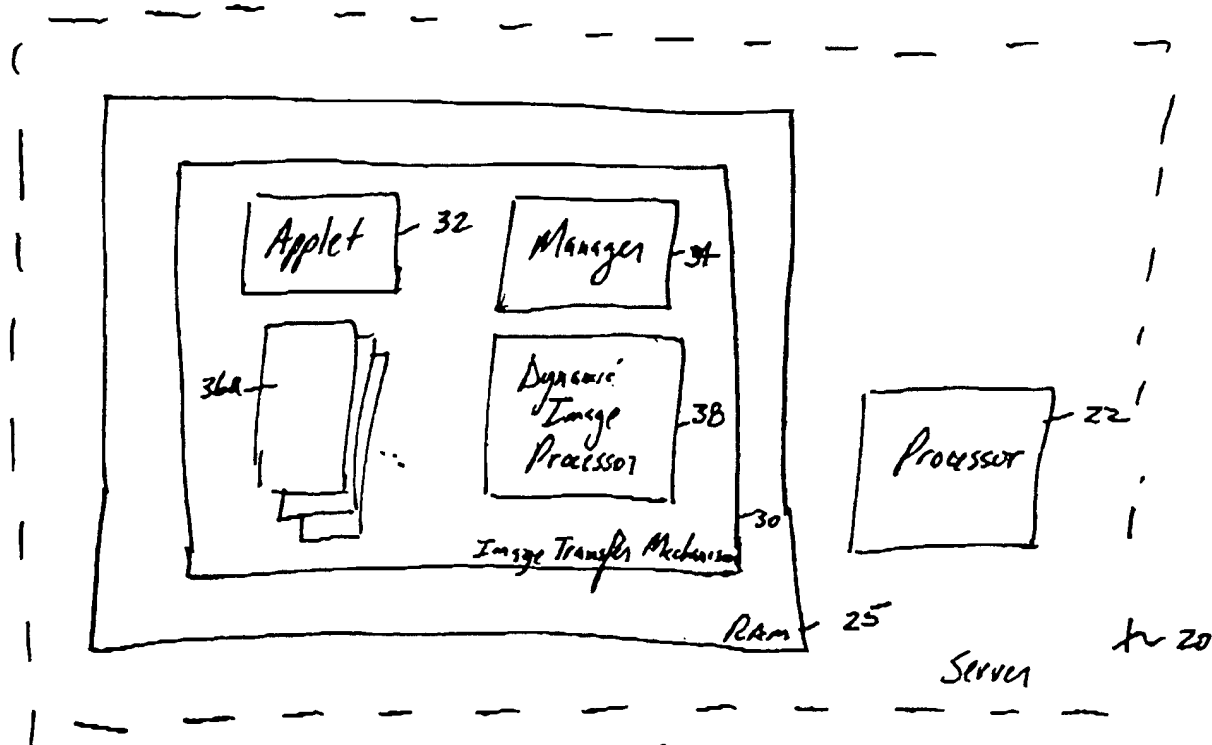 Applet
32
Manager
34
36a
Dynamic
Image
Processor
38
Processor
22
30
Image Transfer Mechanism
RAM
25
20
Server